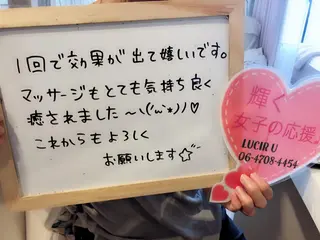 1回で効果が出て嬉しいです。
マッサージもとても気持ち良く
癒されました〜\(^ω^*)ノ♡
これからもよろしく
お願いします☆
輝く
女子の応援
LUCIR U
06-4708-4454